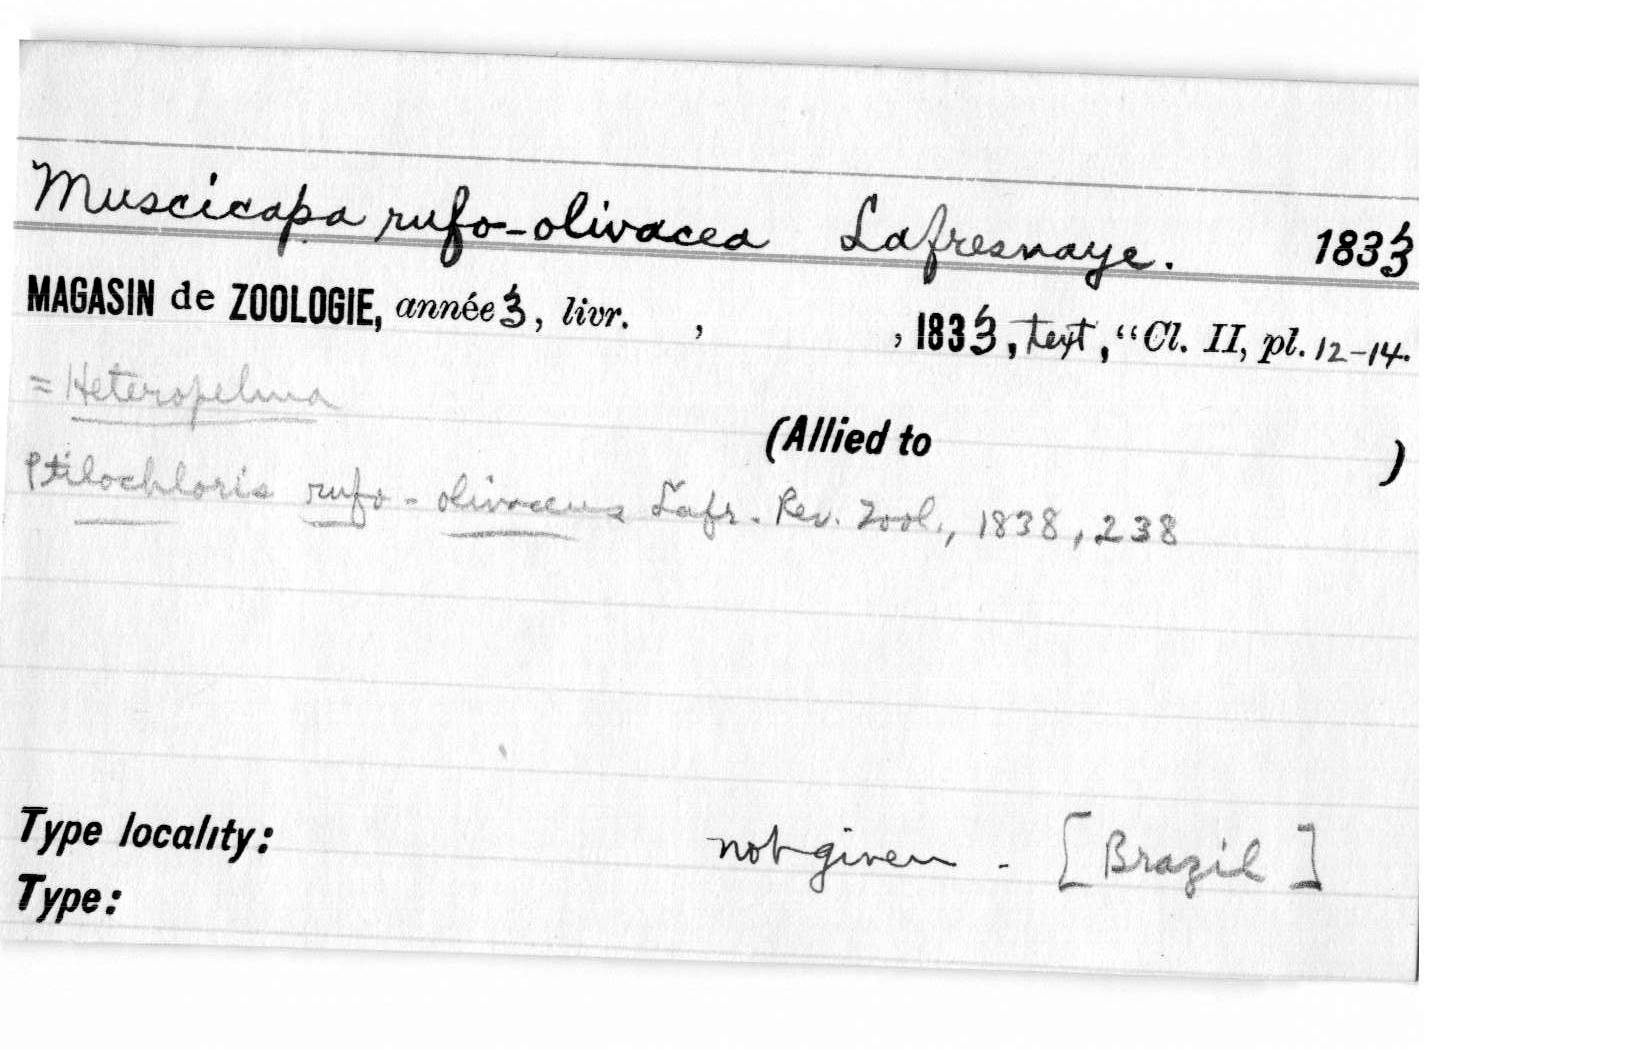 Muscicapa rufo-olivacea Lafresnaye. 1833
MAGASIN de ZOOLOGIE, année 3, livr. , , 1833, text, "Cl. II, pl. 12-14.
= Heteropelma
(Allied to )
Ptilochloris rufo-olivaceus Lafr. Rev. Zool., 1838, 238
Type locality: not given - [Brazil]
Type: